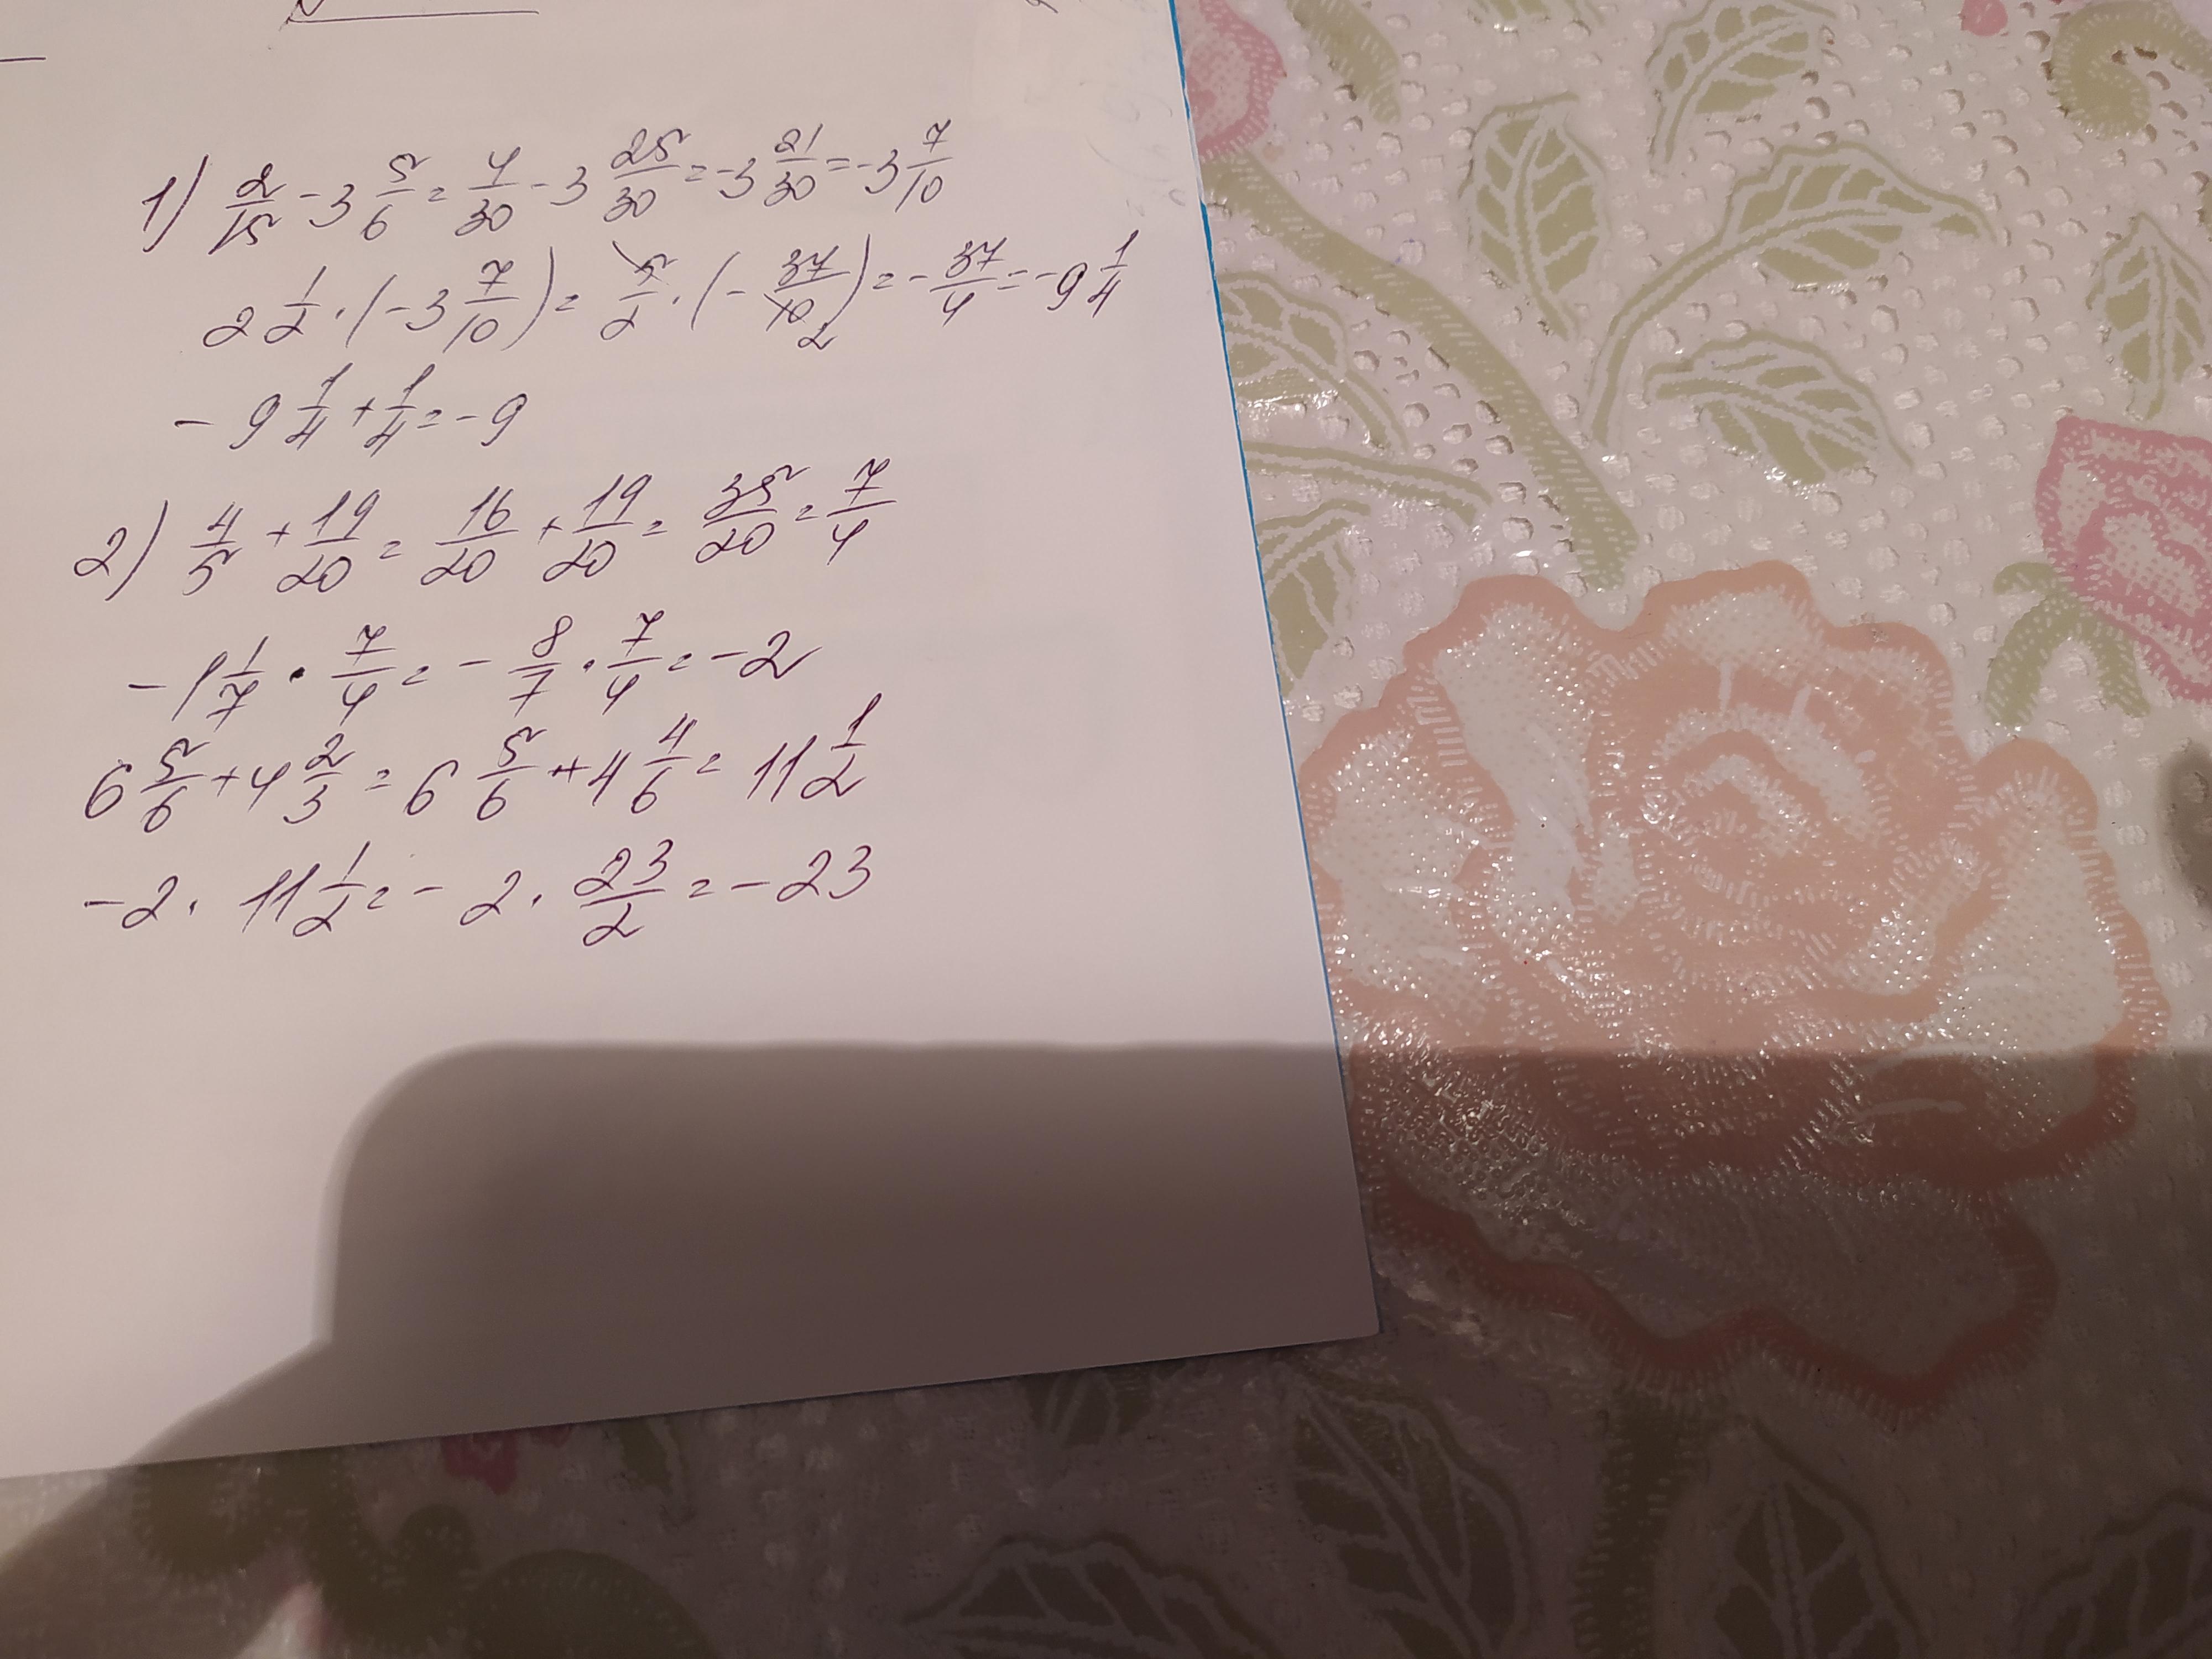 1) 2/15 - 3 5/6 = 4/30 - 3 25/30 = -3 21/30 = -3 7/10
2 1/2 · (-3 7/10) = 5/2 · (- 37/10 2) = - 37/4 = -9 1/4
- 9 1/4 + 1/4 = - 9
2) 4/5 + 19/20 = 16/20 + 19/20 = 35/20 = 7/4
- 1 1/7 · 7/4 = - 8/7 · 7/4 = -2
6 5/6 + 4 2/3 = 6 5/6 + 4 4/6 = 11 1/2
-2 · 11 1/2 = - 2 · 23/2 = - 23